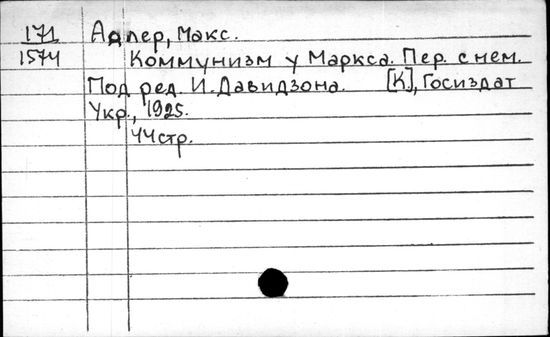 171 Адлер, Макс.
1574 Коммунизм у Маркса. Пер. с нем.
Под ред. И. Давидзона. [К], Госиздат
Укр., 1925.
44 стр.